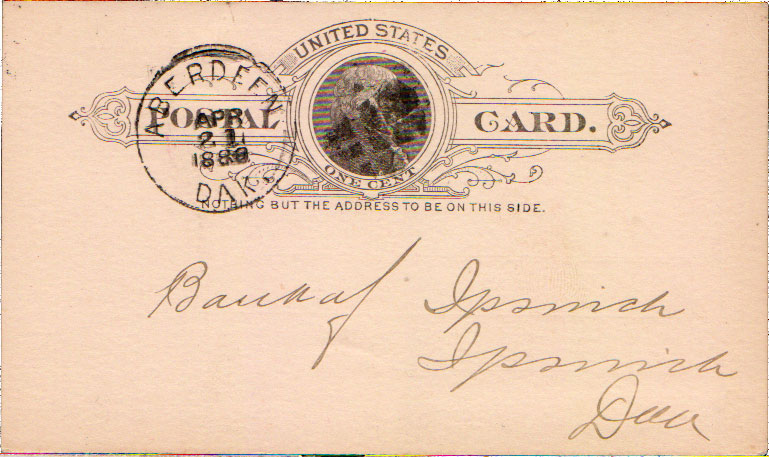 UNITED STATES
POSTAL CARD.
ONE CENT
NOTHING BUT THE ADDRESS TO BE ON THIS SIDE.
ABERDEEN
APR
21
DAK.
Bank of Ipswich
Ipswich
Dak